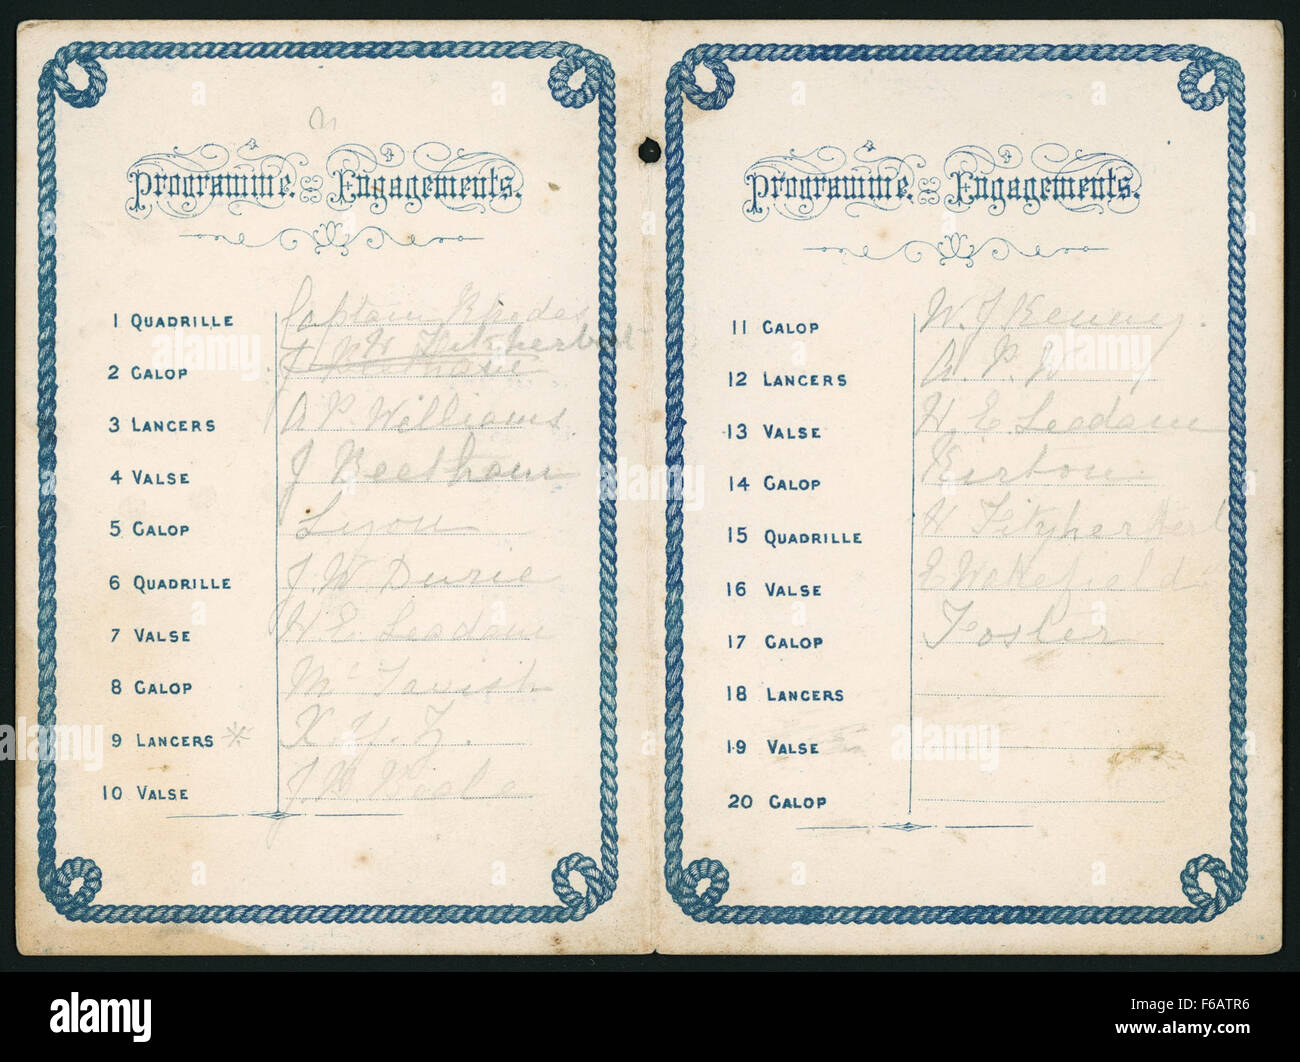 Programme. Engagements.
1 QUADRILLE Captain Rhodes
H Fitzherbert
2 GALOP J Beetham
3 LANCERS A P Williams
4 VALSE J Beetham
5 GALOP Lyon
6 QUADRILLE J W Durie
7 VALSE H E Leadam
8 GALOP McTavish
9 LANCERS * X Y. Z.
10 VALSE J H
Programme. Engagements.
11 GALOP W. J Kenny.
12 LANCERS A. P. W
13 VALSE H E Leadam
14 GALOP Kirton
15 QUADRILLE H Fitzherbert
16 VALSE E Wakefield
17 GALOP Foster
18 LANCERS
19 VALSE
20 GALOP
alamy
Image ID: F6ATR6
www.alamy.com